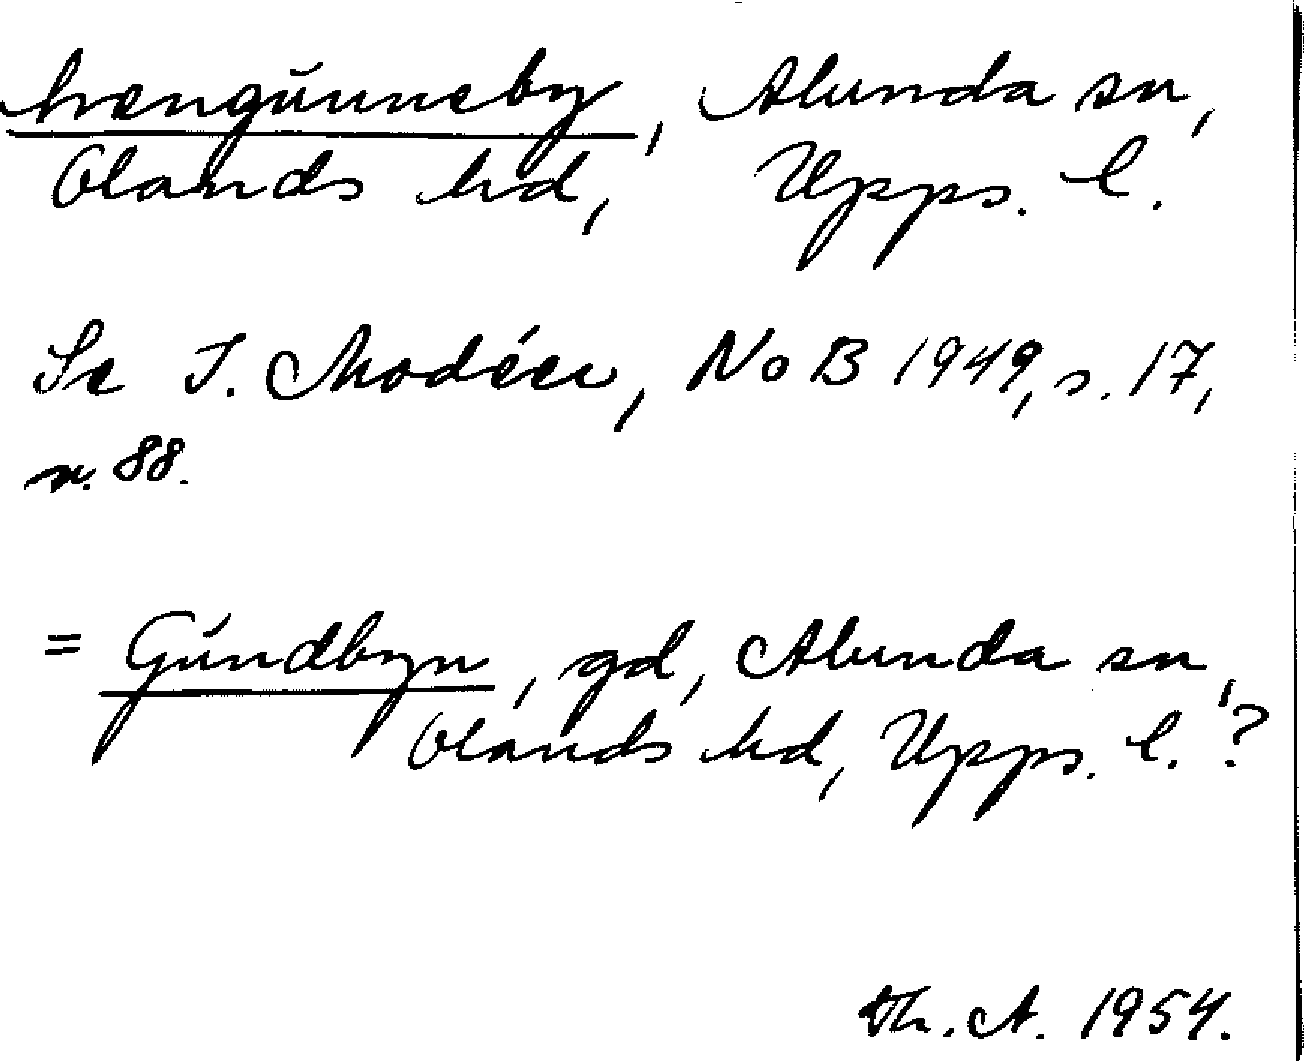 hrængunneby, Alunda sn,
Olands hd, Upps. l.
Se I. Modéer, NoB 1949, s. 17,
n. 88.
= Gundbyn, gd, Alunda sn,
Olands hd, Upps. l.?
Th. A. 1954.